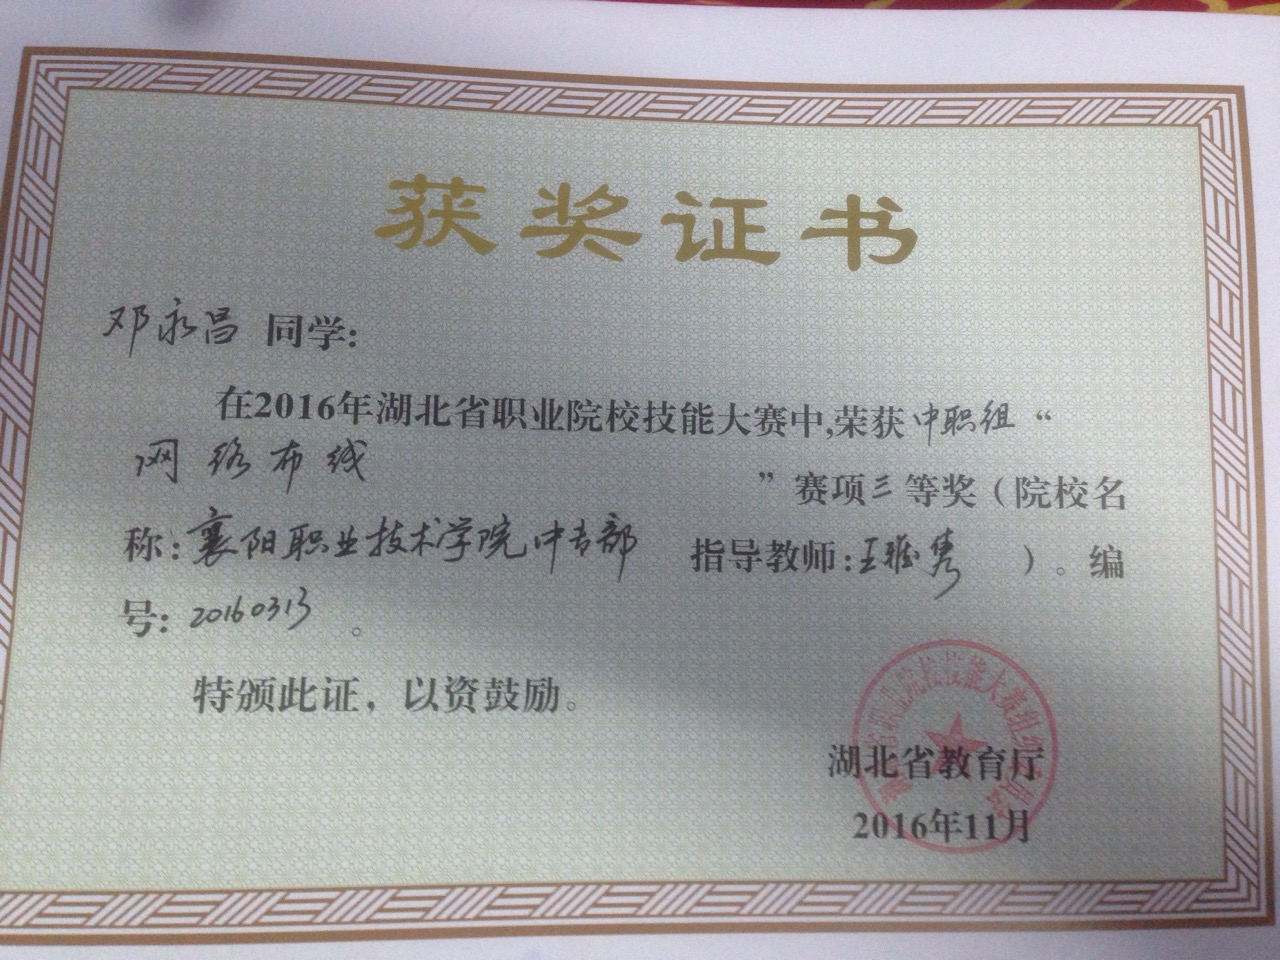 获奖证书
邓永昌 同学:
在2016年湖北省职业院校技能大赛中,荣获中职组“
网络布线 ”赛项三等奖（院校名
称:襄阳职业技术学院中专部 指导教师:王雅隽 ）。编
号:20160313 。
特颁此证，以资鼓励。
湖北省职业院校技能大赛组织委员会
湖北省教育厅
2016年11月